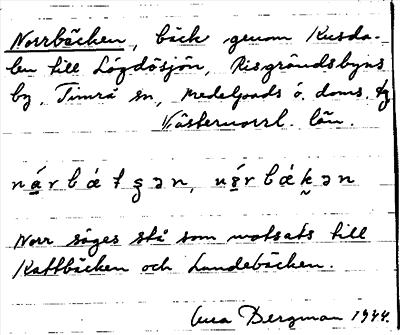 Norrbäcken, bäck genom Kusda-
len till Lögdösjön, Risgrändsbyns
by, Timrå sn, Medelpads ö. doms. tg
Västernorrl. län.
Norr säges stå som motsats till
Kattbäcken och Lundebäcken.
Bergman 1944.